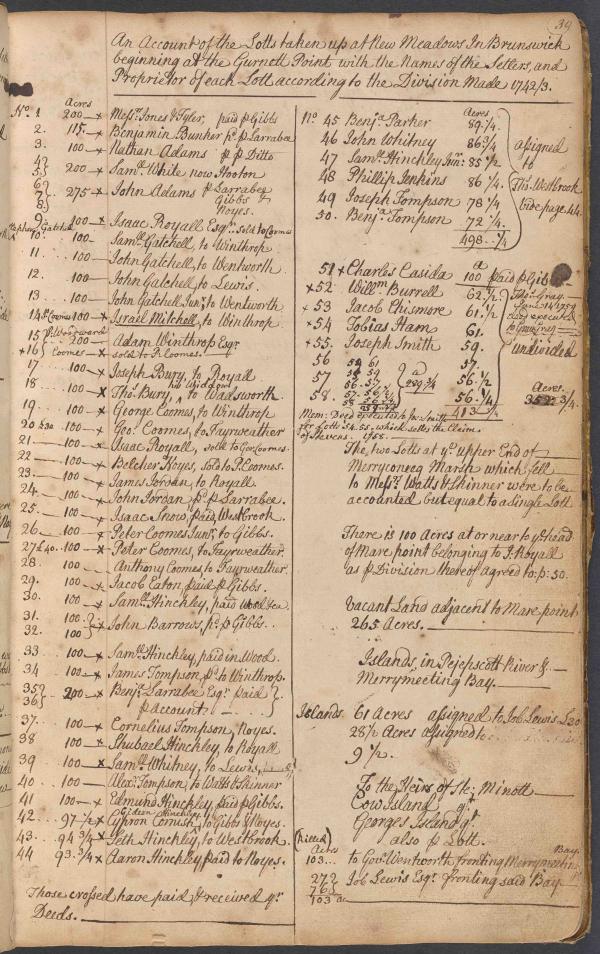 34
An Account of the Lotts taken up at New Meadows In Brunswick
beginning at the Gurnett Point with the Names of the Setlers, and
Proprietor of each Lott according to the Division Made 1742/3.
Acres
No. 1 200 x Messrs. Jones & Tyler, paid p Gibbs
2. 115 x Benjamin Bunker pd. p Larrabee
3. 100 x Nathan Adams p p Ditto
4 5 200 x Saml. While now Hooton
6 7 8 275 x John Adams p Larrabee
Gibbs &
Noyes.
9 100 x Isaac Royall Esqr. sold to Coomes
10. 100 Saml. Gatchell to Winthrop
11 100 John Gatchell, to Wentworth
12. 100 John Gatchell to Lewis.
13 100 John Gatchell Junr. to Wentworth
14 100 x Israel Mitchell, to Winthrop
15 200 Adam Winthrop Esqr.
x 16 Coomes x sold to P. Coomes.
17 100 x Joseph Bury, to Royall
his widdow
18 100 x Thos. Bury, to Wadsworth.
19 100 x George Coomes, to Winthrop
20 100 x Geo. Coomes, to Fayrweather
21 100 x Isaac Royall, sold to Geo Coomes.
22 100 x Belcher Noyes, Sold to P. Coomes.
23 100 x James Jordan, to Royall
24 100 x John Jordan pd. p Larrabee.
25 100 x Isaac Snow, paid Westbrook.
26 100 x Peter Coomes Junr. to Gibbs.
27 £40 100 x Peter Coomes, to Fayrweather.
28 100 Anthony Coomes to Fayrweather
29. 100 x Jacob Eaton paid p Gibbs.
30. 100 x Saml. Hinckley, paid
31. 100
32. 100 x John Barrows, pd. p Gibbs.
33 100 x Saml. Hinckley, paid in Wood.
34 100 x James Tompson pd. to Winthrop.
35 36 200 x Benja. Larrabee Esqr. paid
p account
37 100 x Cornelius Tompson, Noyes.
38 100 x Shubael Hinckley, to Royall
39 100 x Saml. Whitney, to Lewis,
40 100 Alexr. Tompson, to Watts & Skinner
41 100 x Edmund Hinckley, paid p Gibbs.
Gideon Hinckley
42 97 1/2 x Cyhron Cornish, to Gibbs & Noyes.
43 94 3/4 x Seth Hinckley, to Westbrook.
44 93. 3/4 x Aaron Hinckley, paid to Noyes.
Those crossed have paid & received yr.
Deeds.
Acres
No. 45 Benja. Parker 89. 1/4.
46 John Whitney 86 3/4
47 Saml. Hinckley Junr. 85 1/2
48 Phillip Jenkins 86 1/4.
49 Joseph Tompson 78 1/4
50. Benja. Tompson 72 1/4.
498 1/4
assigned
to
Tho. Westbrook
vide page 44.
51 x Charles Casida 100 paid p Gibbs
x 52 Willm. Burrell 62. 1/2
x 53 Jacob Chismore 61. 1/2
x 54 Tobias Ham 61.
x 55. Joseph Smith 59.
56 57.
57 56. 1/2
58. 56. 1/4
413
Thos. Gray
June 14 1759
deed executed
undivided
Acres.
352 3/4
Mem: Deed executed to for Smith
for Lotts 54. 55. which setles the Claim
of Stevens. 1758.
The two Lotts at ye. upper End of
Merryconeeg Marsh which fell
to Messrs. Watts & Skinner were to be
accounted but equal to a single Lott
There is 100 Acres at or near to ye. head
of Mare point belonging to I. Royall
as p Division thereof agreed to: p: 50.
Vacant Land adjacent to Mare point
265 Acres.
Islands, in Pejepscott River &
Merrymeeting Bay.
Islands 61 Acres assigned to Job Lewis £20
28 1/2 Acres assigned to
9 1/2.
To the Heirs of Ste: Minott
Cow Island qt.
Georges Island qt.
also p Lott.
Acres
103 to Govr. Wentworth fronting Merrymeeting Bay.
272 Job Lewis Esqr. fronting said Bay
765
103 a